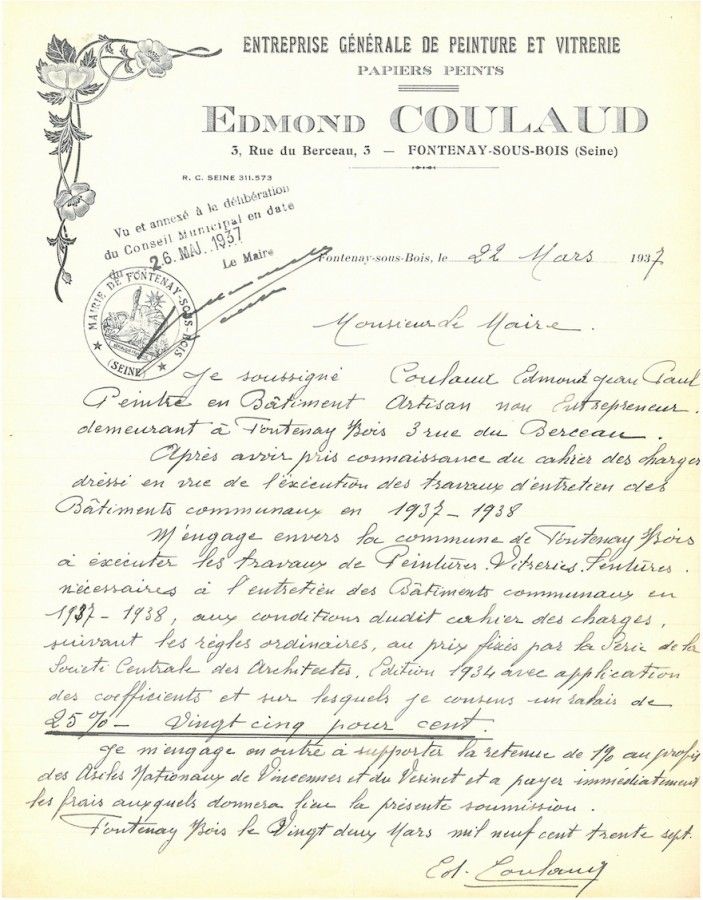 ENTREPRISE GÉNÉRALE DE PEINTURE ET VITRERIE
PAPIERS PEINTS
EDMOND COULAUD
3, Rue du Berceau, 3 — FONTENAY-SOUS-BOIS (Seine)
R. C. SEINE 311.573
Vu et annexé à la délibération
du Conseil Municipal en date
du 26 MAI 1937
Le Maire
MAIRIE DE FONTENAY-SOUS-BOIS
(SEINE)
Fontenay-sous-Bois, le 22 Mars 1937
Monsieur le Maire.
Je soussigné Coulaux Edmond Jean Paul
Peintre en Bâtiment Artisan non Entrepreneur.
demeurant à Fontenay s/Bois 3 rue du Berceau.
Après avoir pris connaissance du cahier des charges
dressé en vue de l'éxécution des travaux d'entretien des
Bâtiments communaux en 1937-1938
M'engage envers la commune de Fontenay s/Bois
à éxécuter les travaux de Peintures. Vitreries. Tentures.
nécessaires à l'entretien des Bâtiments communaux en
1937-1938, aux conditions dudit cahier des charges,
suivant les règles ordinaires, au prix fixés par la Série de la
Societé Centrale des Architectes, Edition 1934 avec application
des coefficients et sur lesquels je consens un rabais de
25% - Vingt cinq pour cent.
Je m'engage en outre à supporter la retenue de 1% au profit
des Asiles Nationaux de Vincennes et du Vesinet et a payer immédiatement
les frais auxquels donnera lieu la présente soumission.
Fontenay s/Bois le Vingt deux Mars mil neuf cent trente sept.
Ed. Coulaud